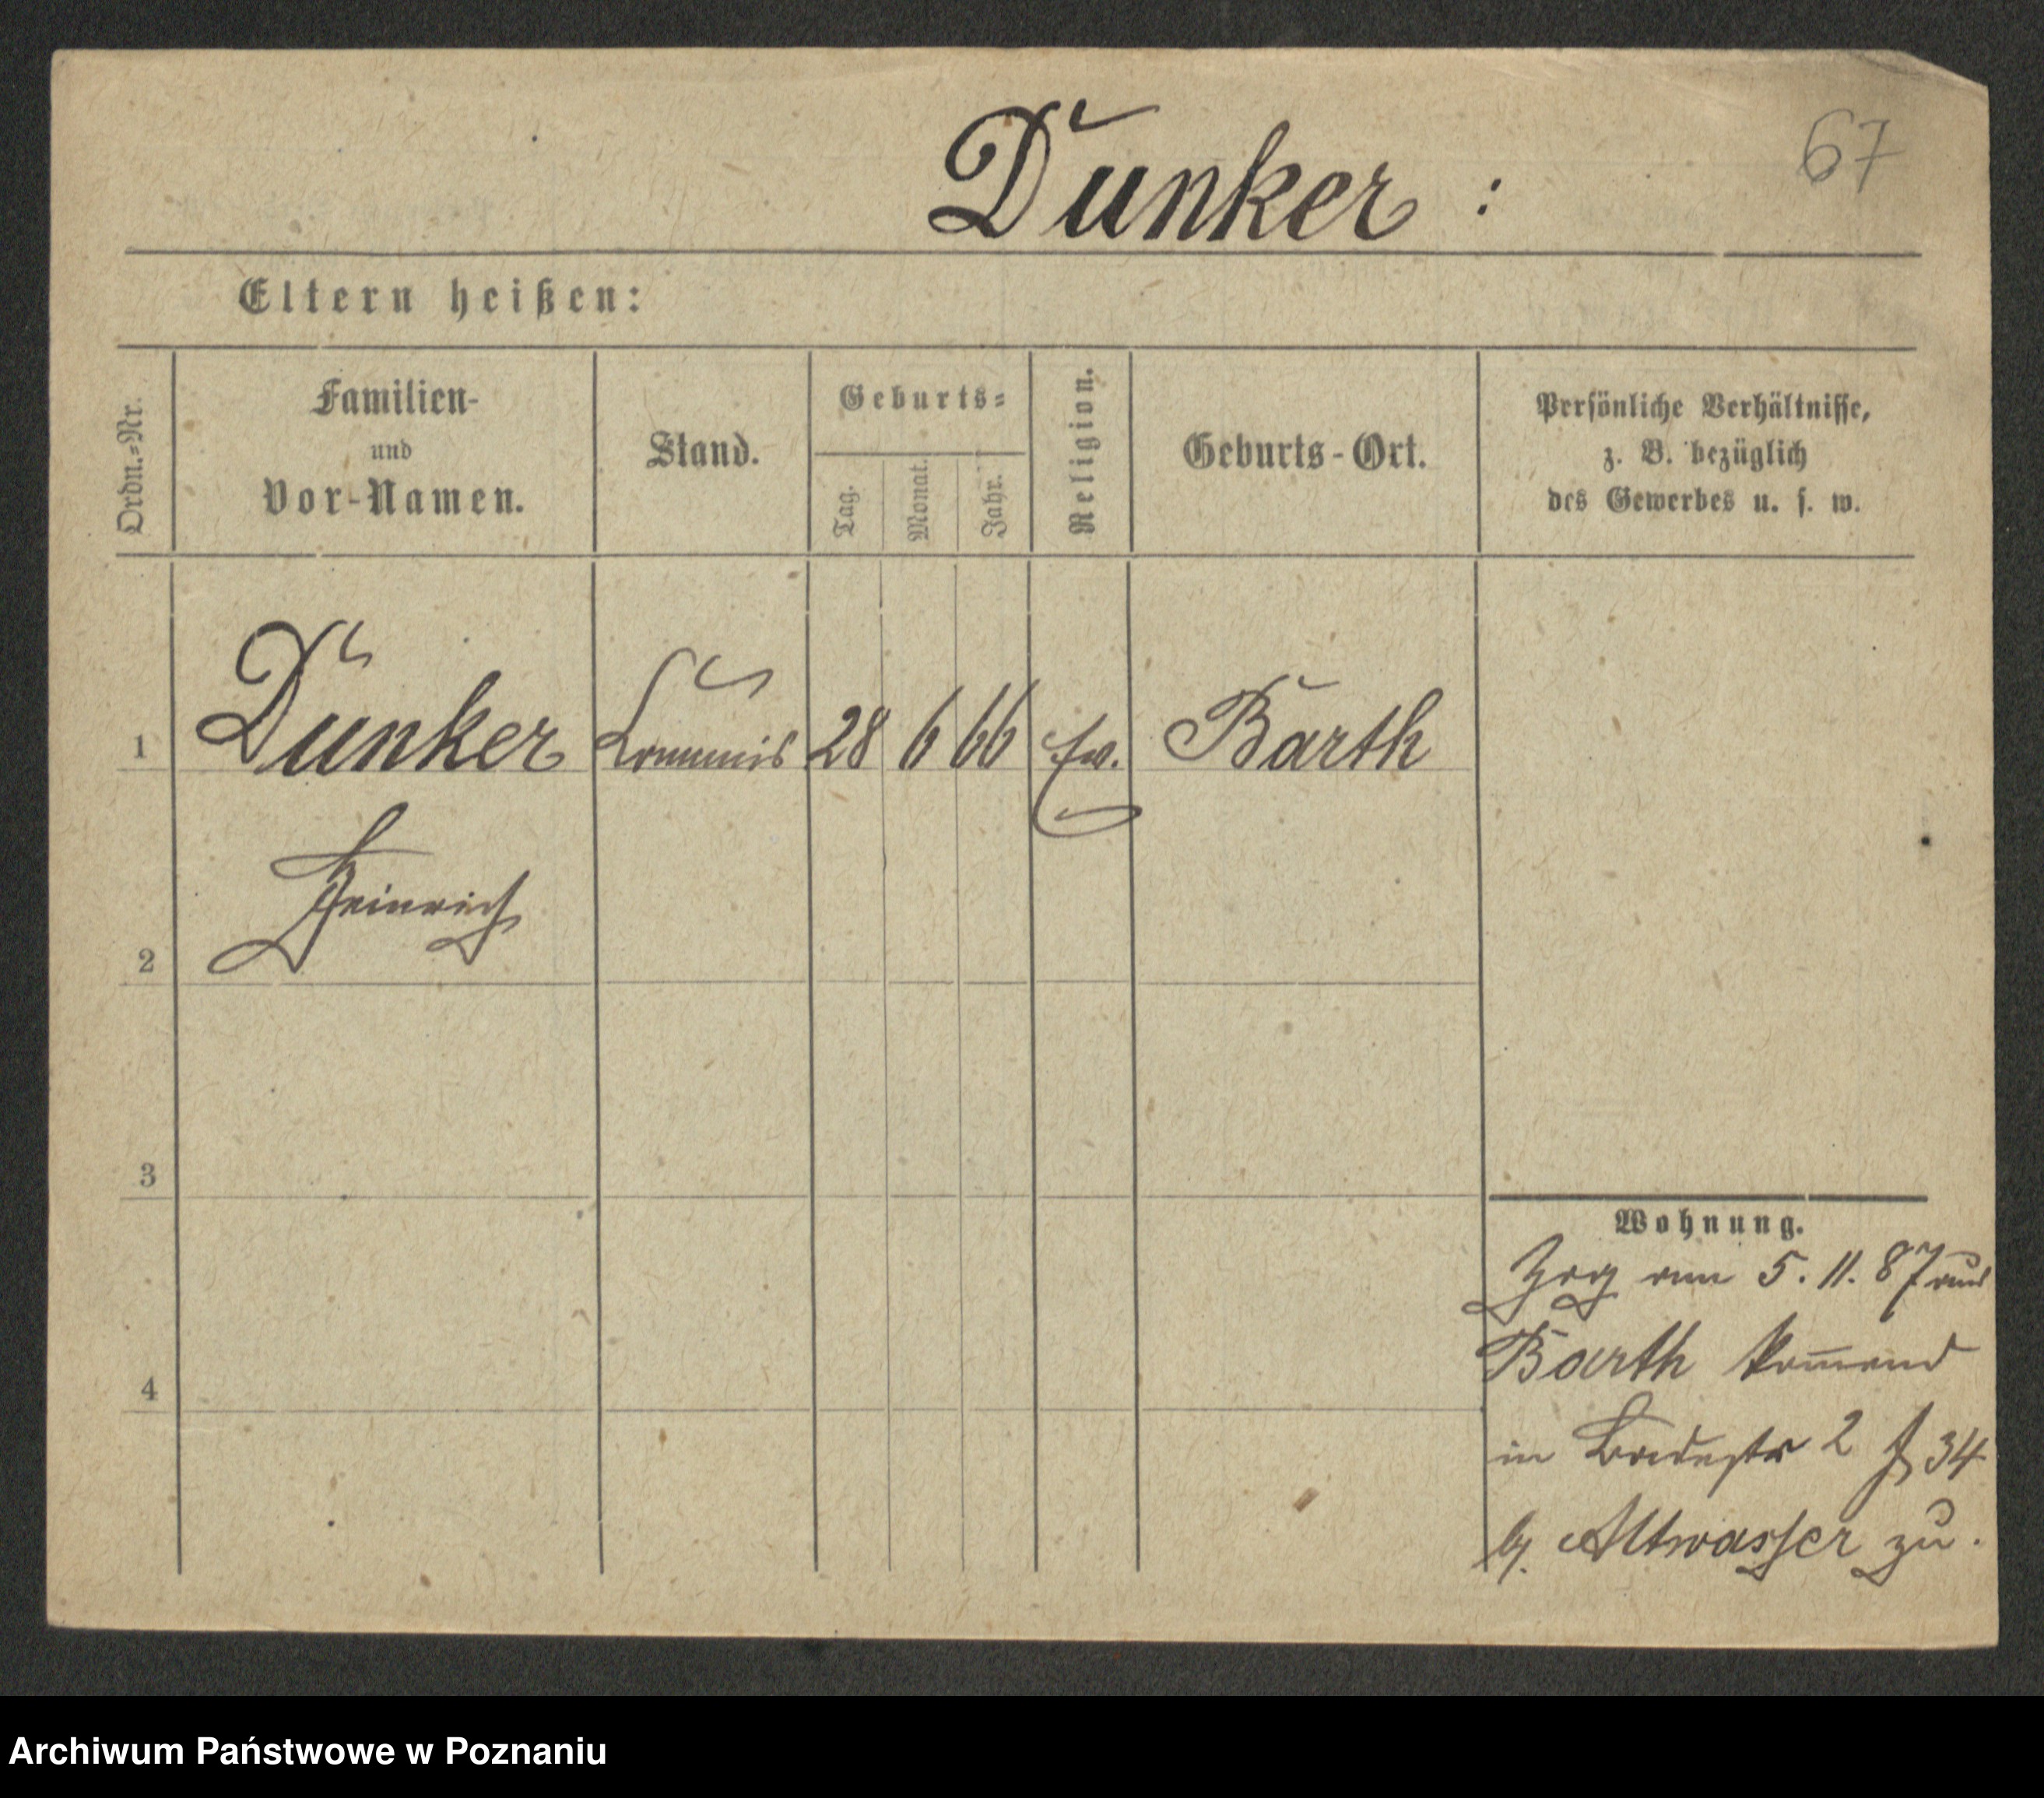 67
Dunker :
Eltern heißen:
Ordn.-Nr.
Familien-
und
Vor-Namen.
Stand.
Geburts-
Tag.
Monat.
Jahr.
Religion.
Geburts-Ort.
Persönliche Verhältnisse,
z. B. bezüglich
des Gewerbes u. s. w.
1 Dunker Commis 28 6 66 Ev. Barth
Heinrich
2
3
4
Wohnung.
Zog am 5. 11. 87 aus
Barth kom̄end
in 2 34
b. Altwasser zu.
Archiwum Państwowe w Poznaniu